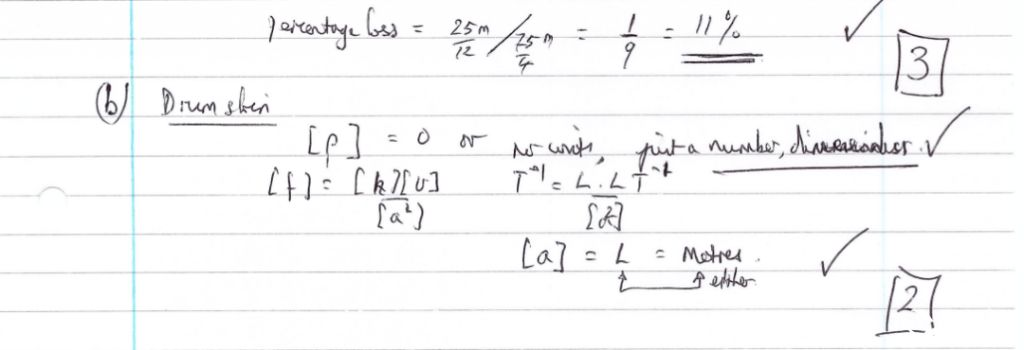 percentage loss = 25m/12 / 75m/4 = 1/9 = 11% ✓
3
(b) Drum skin
[p] = 0 or no units, just a number, dimensionless. ✓
[f] = [k][v]/[a²] T⁻¹ = L.L T⁻¹/[a²]
[a] = L = Metres. ✓
either
2